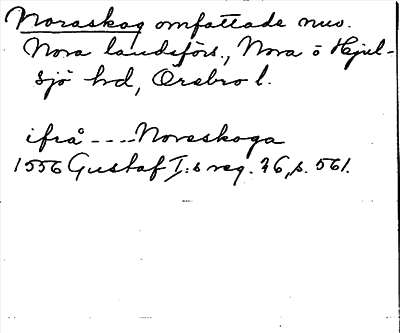 Noraskog omfattade nuv.
Nora landsförs., Nora o Hjul-
sjö hd, Örebro l.
ifrå ---- Noreskoga
1556 Gustaf I:s reg. 26, s. 561.